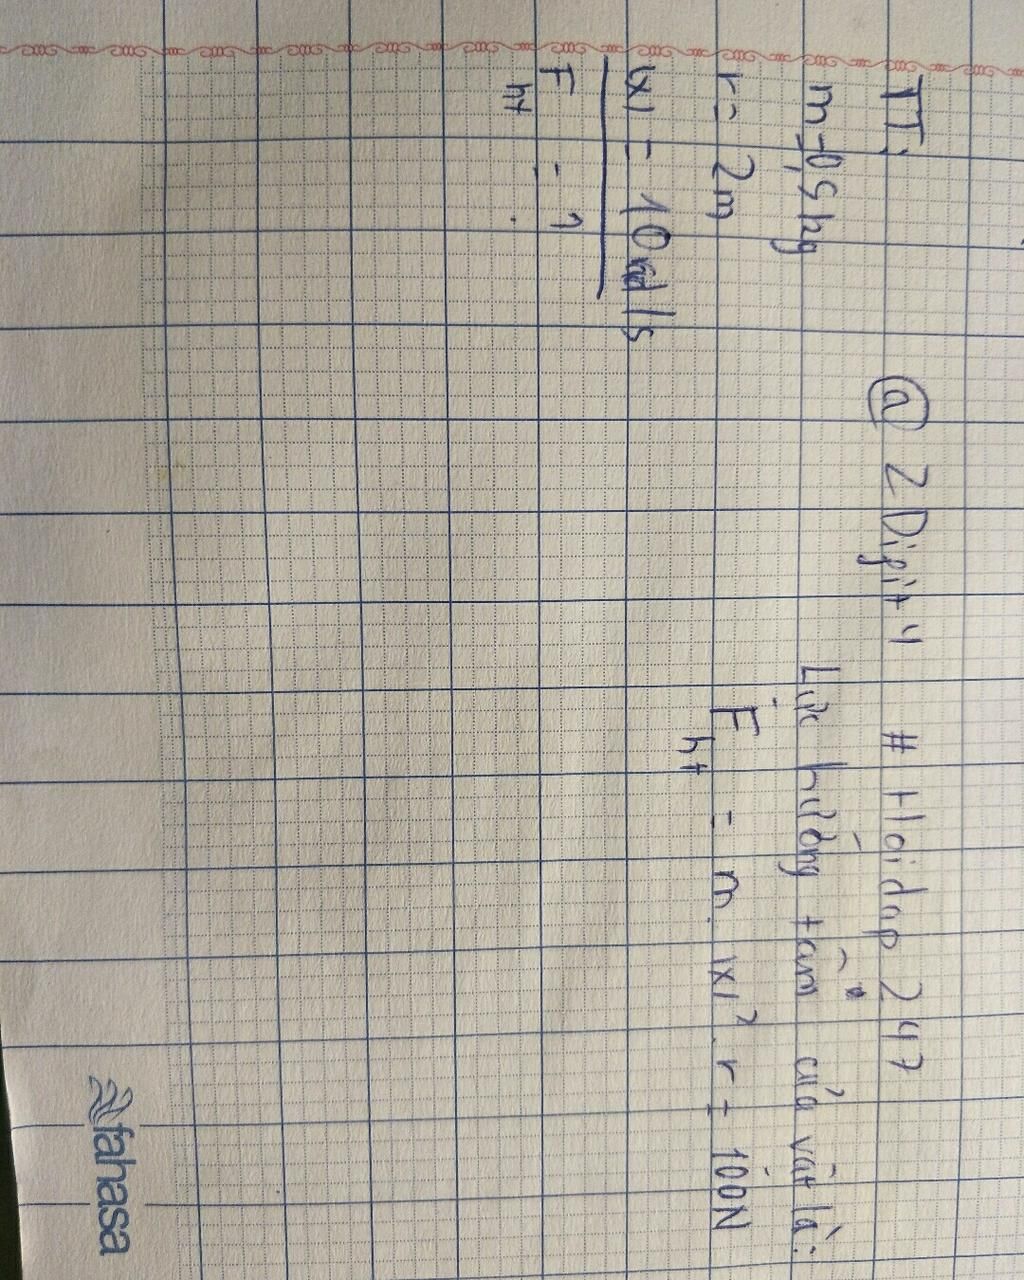 TT:
m=0,5kg
r = 2m
|x| = 10 rad/s
Fht = ?
@ 2Digit4 # Hoidap 247
Lực hướng tâm của vật là:
Fht = m. |x|². r = 100N
fahasa